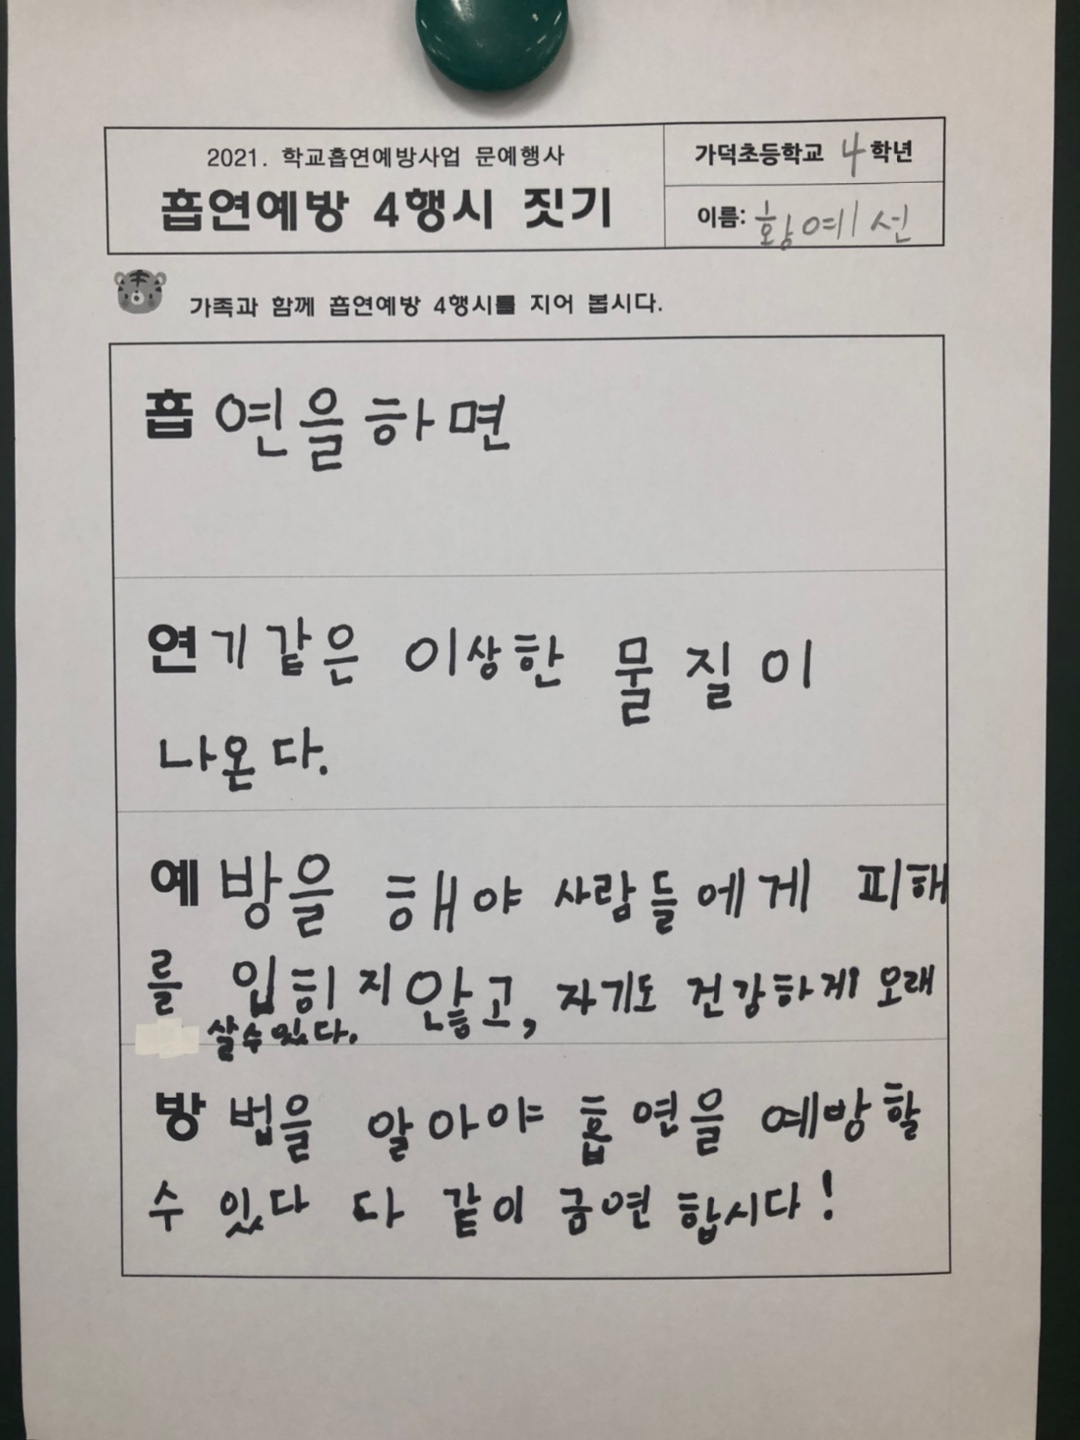 2021. 학교흡연예방사업 문예행사
흡연예방 4행시 짓기
가덕초등학교 4학년
이름: 황예선
가족과 함께 흡연예방 4행시를 지어 봅시다.
흡연을하면
연기같은 이상한 물질이
나온다.
예방을 해야 사람들에게 피해
를 입히지않고, 자기도 건강하게 오래
살수있다.
방법을 알아야 흡연을 예방할
수 있다 다 같이 금연 합시다!